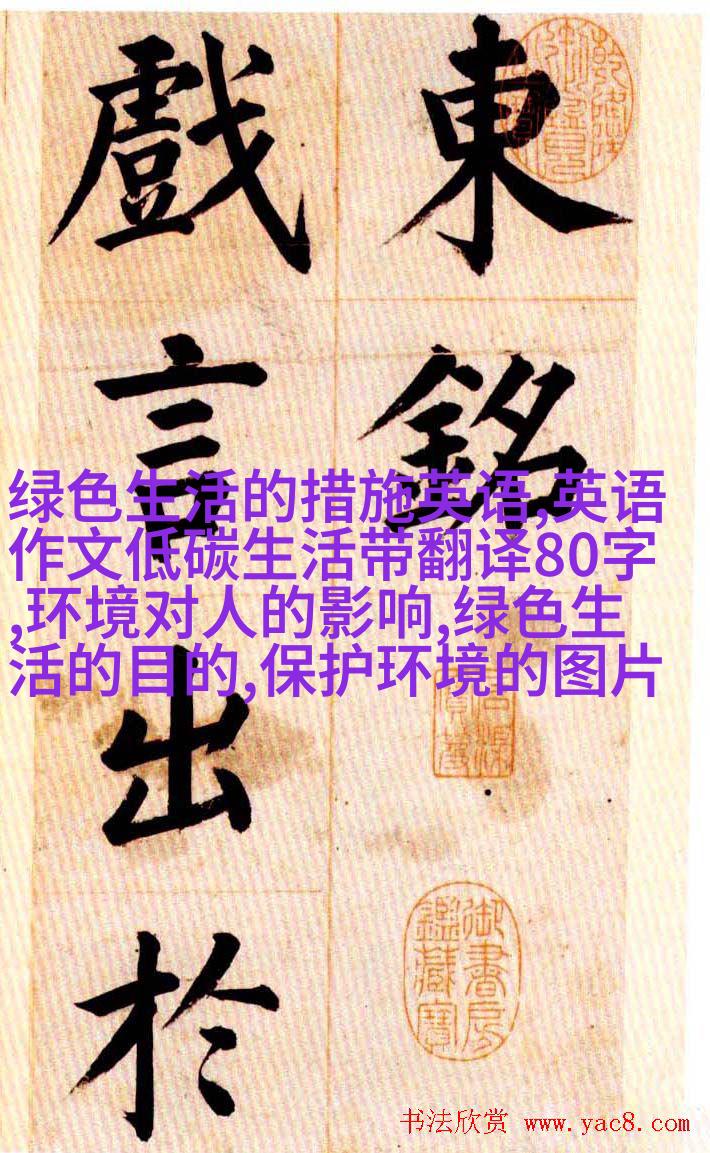 東銘
戲言出於
绿色生活的措施英语,英语
作文低碳生活带翻译80字
,环境对人的影响,绿色生
活的目的,保护环境的图片
御書房鑑藏寶
书法欣赏 www.yac8.com